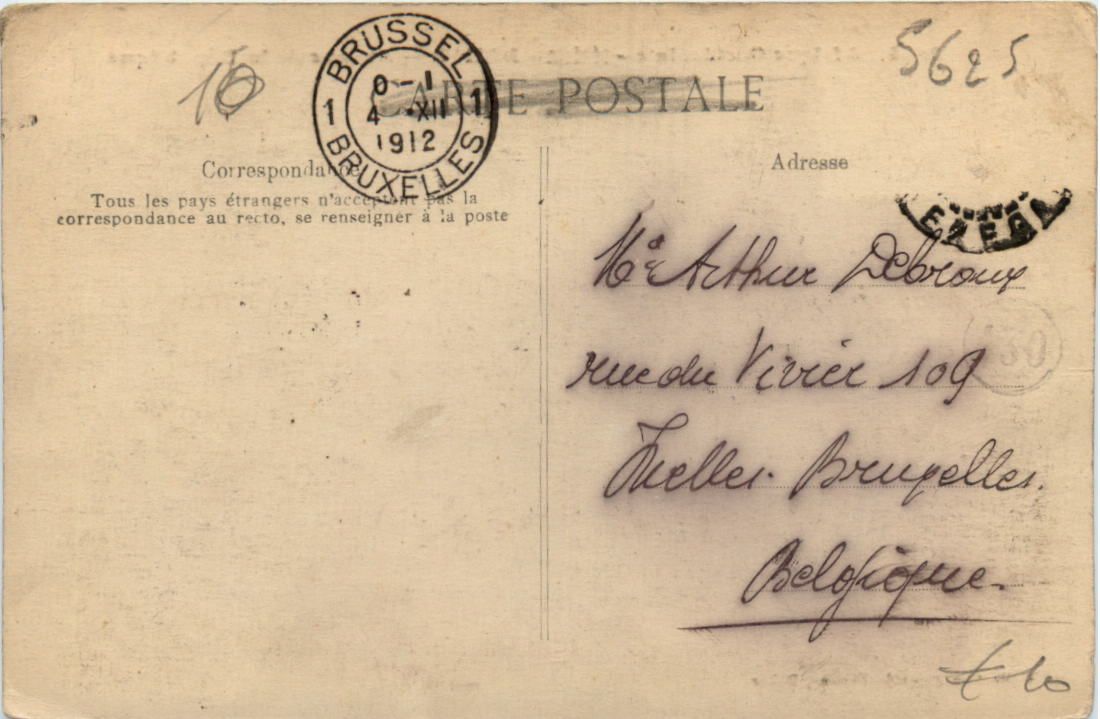 10
5625
BRUSSEL
0-1
1 4 XII 1
1912
BRUXELLES
CARTE POSTALE
Correspondance
Tous les pays étrangers n'acceptent pas la
correspondance au recto, se renseigner à la poste
Adresse
Arthur Debroux
rue du Vivier 109
Ixelles. Bruxelles.
Belgique.
10